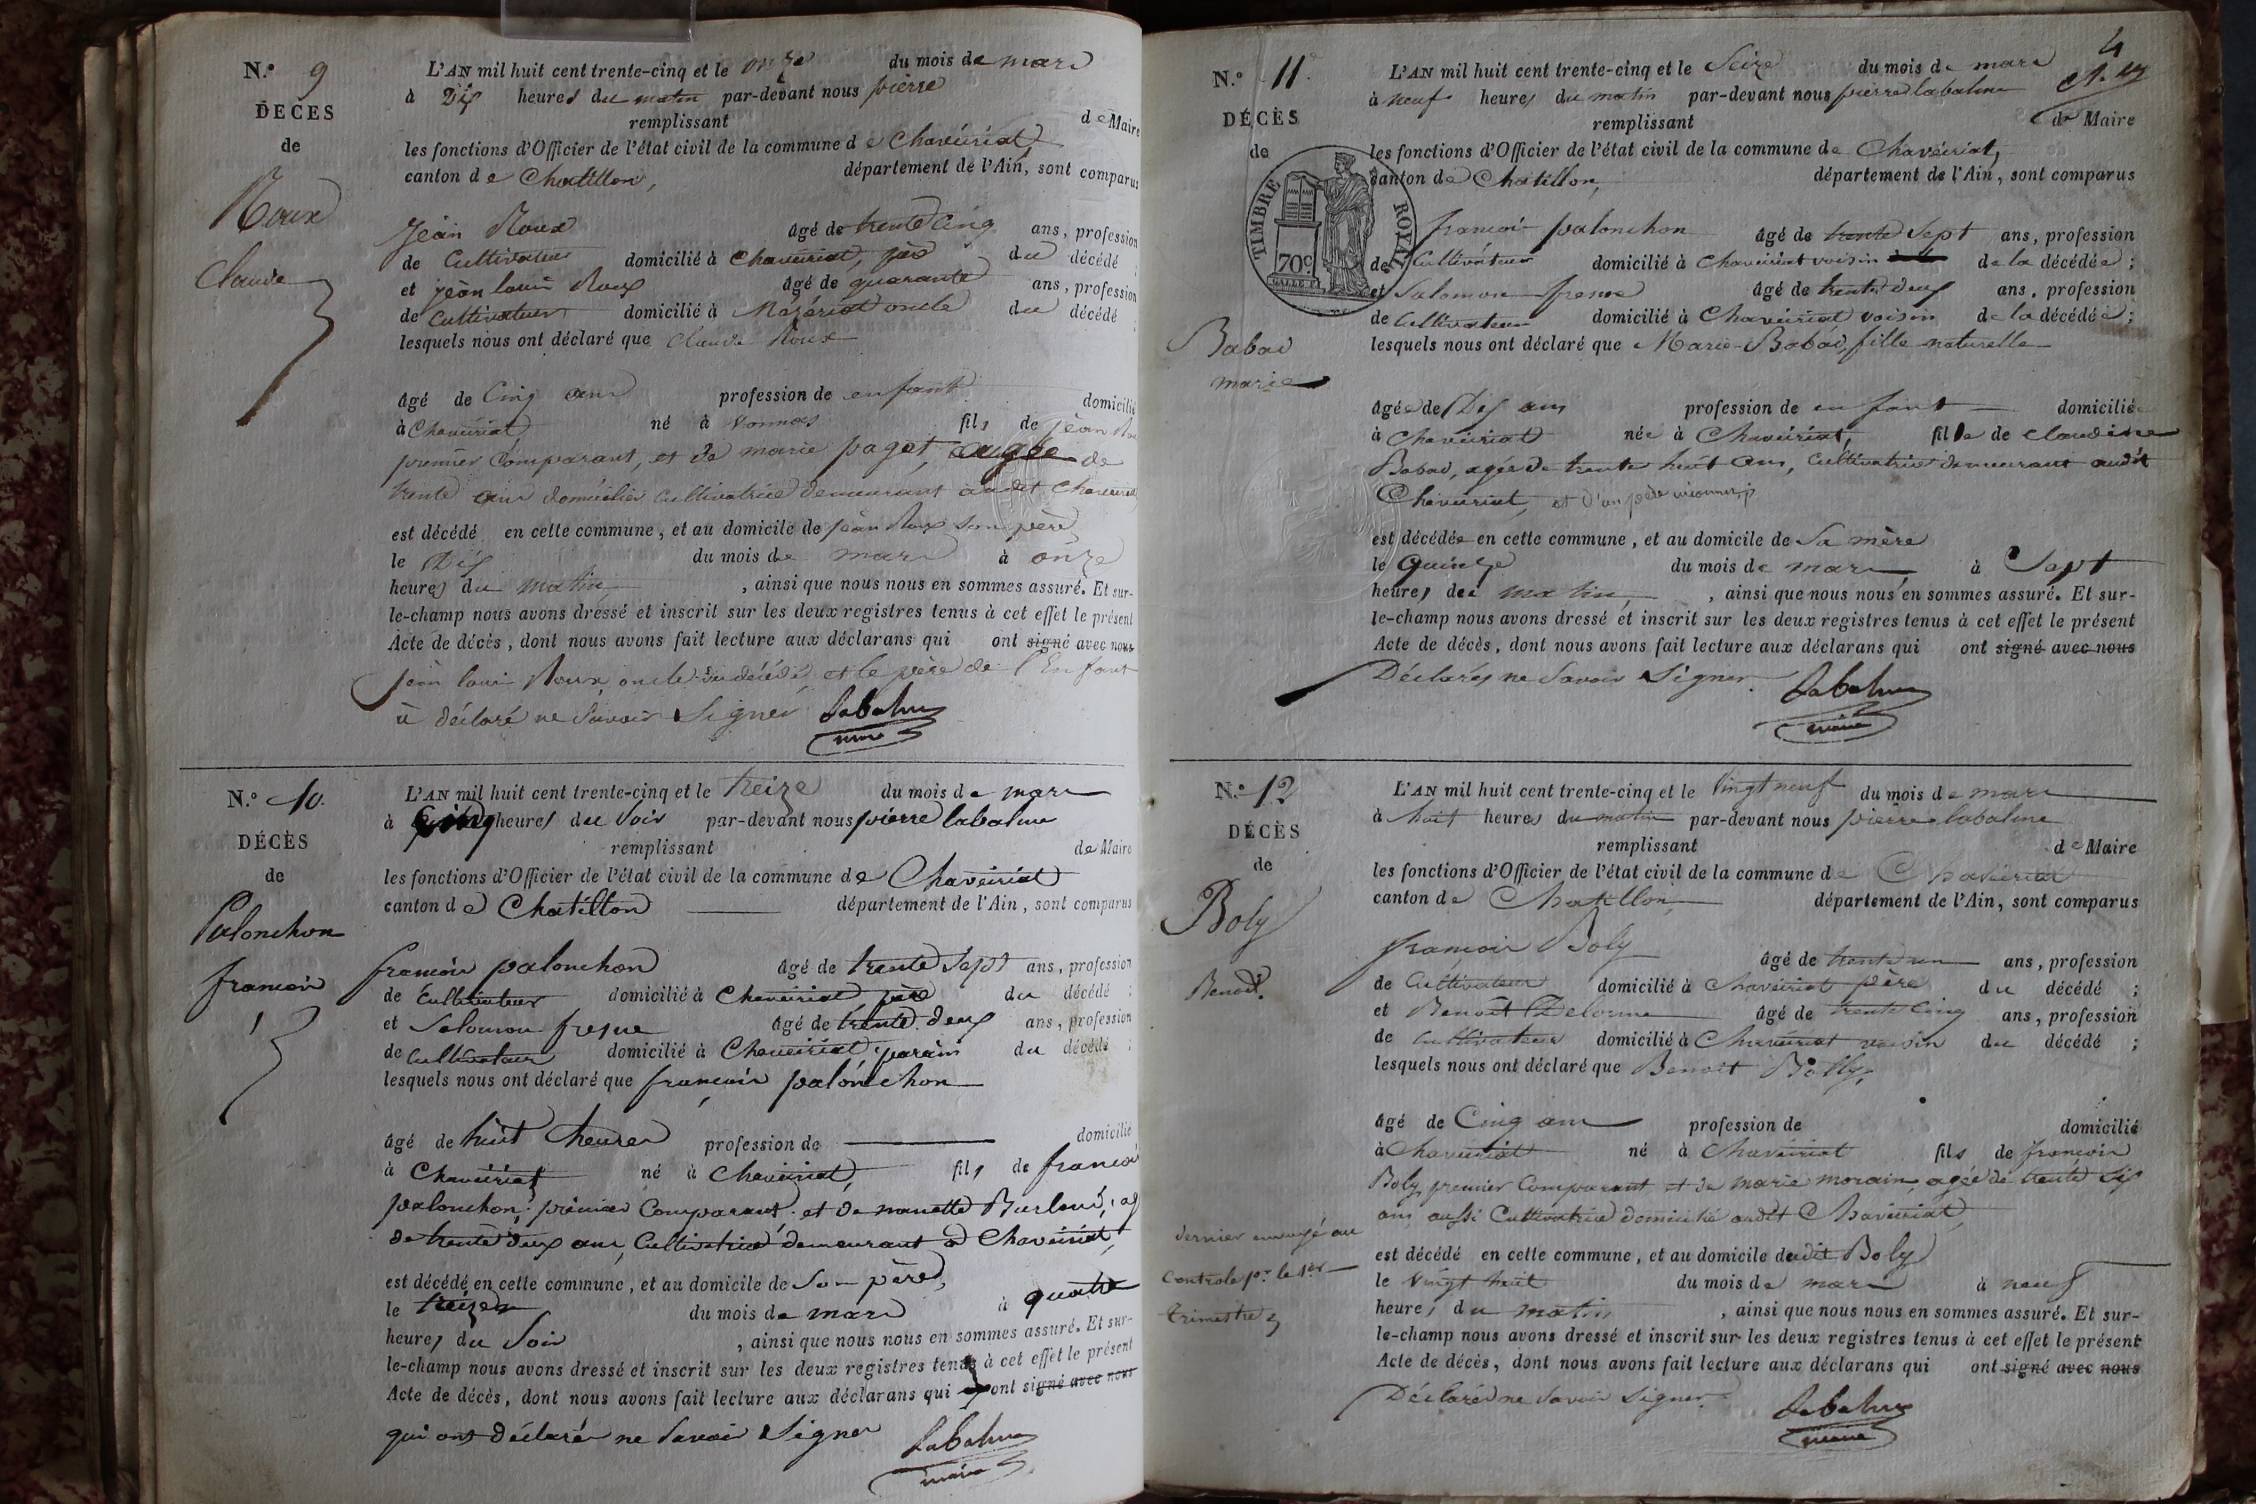 N.º 9
DÉCES
de
Roux
Claude
L'AN mil huit cent trente-cinq et le onze du mois de mars
à Dix heures du matin par-devant nous pierre
remplissant de Maire
les fonctions d'Officier de l'état civil de la commune de Chaveiriat
canton de Chatillon, département de l'Ain, sont comparus
Jean Roux âgé de trente cinq ans, profession
de Cultivateur domicilié à Chaveiriat, père du décédé ;
et jean louis Roux âgé de quarante ans, profession
de Cultivateur domicilié à Mézériat oncle du décédé ;
lesquels nous ont déclaré que Claude Roux
âgé de Cinq ans profession de enfant domicilié
à Chaveiriat né à Vonnas fils de jean Rou
premier Comparant, et de marie paget, de
trente ans Cultivatrice demeurant audit Chaveiriat
est décédé en cette commune, et au domicile de jean Roux son père
le Dix du mois de mars à onze
heures du matin, ainsi que nous nous en sommes assuré. Et sur-
le-champ nous avons dressé et inscrit sur les deux registres tenus à cet effet le présent
Acte de décès, dont nous avons fait lecture aux déclarans qui ont signé avec nous
jean louis Roux oncle du décédé et le père de l'Enfant
a déclaré ne Savoir Signer Labalme
maire
N.º 10.
DÉCÈS
de
Palonchon
francois
L'AN mil huit cent trente-cinq et le treize du mois de mars
à Cinq heures du Soir par-devant nous pierre labalme
remplissant de Maire
les fonctions d'Officier de l'état civil de la commune de Chaveiriat
canton de Chatillon département de l'Ain, sont comparus
francois palonchon âgé de trente Sept ans, profession
de Cultivateur domicilié à Chaveiriat père du décédé ;
et Salomon fresne âgé de trente deux ans, profession
de Cultivateur domicilié à Chaveiriat parain du décédé ;
lesquels nous ont déclaré que francois palonchon
âgé de huit heures profession de domicilié
à Chaveiriat né à Chaveiriat, fils de francois
palonchon, premier Comparant et de
de trente deux ans, Cultivatrice demeurant à Chaveiriat,
est décédé en cette commune, et au domicile de Son père,
le treize du mois de mars à quatre
heures du Soir, ainsi que nous nous en sommes assuré. Et sur-
le-champ nous avons dressé et inscrit sur les deux registres tenus à cet effet le présent
Acte de décès, dont nous avons fait lecture aux déclarans qui ont signé avec nous
qui ont déclarés ne Savoir Signer Labalme
maire
4
N.º 11.
DÉCÈS
de
TIMBRE ROYAL
70c
Babad
marie
L'AN mil huit cent trente-cinq et le Seize du mois de mars
à neuf heures du matin par-devant nous pierre labalme
remplissant de Maire
les fonctions d'Officier de l'état civil de la commune de Chaveiriat,
canton de Chatillon, département de l'Ain, sont comparus
francois palonchon âgé de trente Sept ans, profession
de Cultivateur domicilié à Chaveiriat voisin de la décédée ;
et Salomon fresne âgé de trente deux ans, profession
de Cultivateur domicilié à Chaveiriat voisin de la décédée ;
lesquels nous ont déclaré que Marie Babad, fille naturelle
âgée de Dix ans profession de enfant domiciliée
à Chaveiriat née à Chaveiriat, fille de claudine
Babad, agée de trente huit ans, Cultivatrice demeurant audit
Chaveiriat, et d'un père inconnu
est décédée en cette commune, et au domicile de Sa mère
le quinze du mois de mars à Sept
heures du matin, ainsi que nous nous en sommes assuré. Et sur-
le-champ nous avons dressé et inscrit sur les deux registres tenus à cet effet le présent
Acte de décès, dont nous avons fait lecture aux déclarans qui ont signé avec nous
Déclarés ne Savoir Signer. Labalme
maire
N.º 12
DÉCÈS
de
Boly
Benoit.
dernier envoyé au
Controle pr. le 1er
trimestre
L'AN mil huit cent trente-cinq et le Vingt neuf du mois de mars
à huit heures du matin par-devant nous pierre labalme
remplissant de Maire
les fonctions d'Officier de l'état civil de la commune de Chaveiriat
canton de Chatillon département de l'Ain, sont comparus
francois Boly âgé de trente un ans, profession
de Cultivateur domicilié à Chaveiriat père du décédé ;
et Benoit Delorme âgé de trente Cinq ans, profession
de Cultivateur domicilié à Chaveiriat voisin du décédé ;
lesquels nous ont déclaré que Benoit Bolly,
âgé de Cinq ans profession de domicilié
à Chaveiriat né à Chaveiriat fils de francois
Boly, premier Comparant et de marie morain, agée de trente Six
ans, aussi Cultivatrice domicilié audit Chaveiriat,
est décédé en cette commune, et au domicile dudit Boly
le Vingt huit du mois de mars à neuf
heures du matin, ainsi que nous nous en sommes assuré. Et sur-
le-champ nous avons dressé et inscrit sur les deux registres tenus à cet effet le présent
Acte de décès, dont nous avons fait lecture aux déclarans qui ont signé avec nous
Déclarés ne Savoir Signer. Labalme
maire